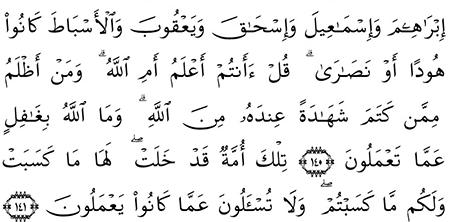 إِبْرَٰهِـۧمَ وَإِسْمَـٰعِيلَ وَإِسْحَـٰقَ وَيَعْقُوبَ وَٱلْأَسْبَاطَ كَانُوا۟
هُودًا أَوْ نَصَـٰرَىٰ ۗ قُلْ ءَأَنتُمْ أَعْلَمُ أَمِ ٱللَّهُ ۗ وَمَنْ أَظْلَمُ
مِمَّن كَتَمَ شَهَـٰدَةً عِندَهُۥ مِنَ ٱللَّهِ ۗ وَمَا ٱللَّهُ بِغَـٰفِلٍ
عَمَّا تَعْمَلُونَ ﴿١٤٠﴾ تِلْكَ أُمَّةٌ قَدْ خَلَتْ ۖ لَهَا مَا كَسَبَتْ
وَلَكُم مَّا كَسَبْتُمْ ۖ وَلَا تُسْـَٔلُونَ عَمَّا كَانُوا۟ يَعْمَلُونَ ﴿١٤١﴾